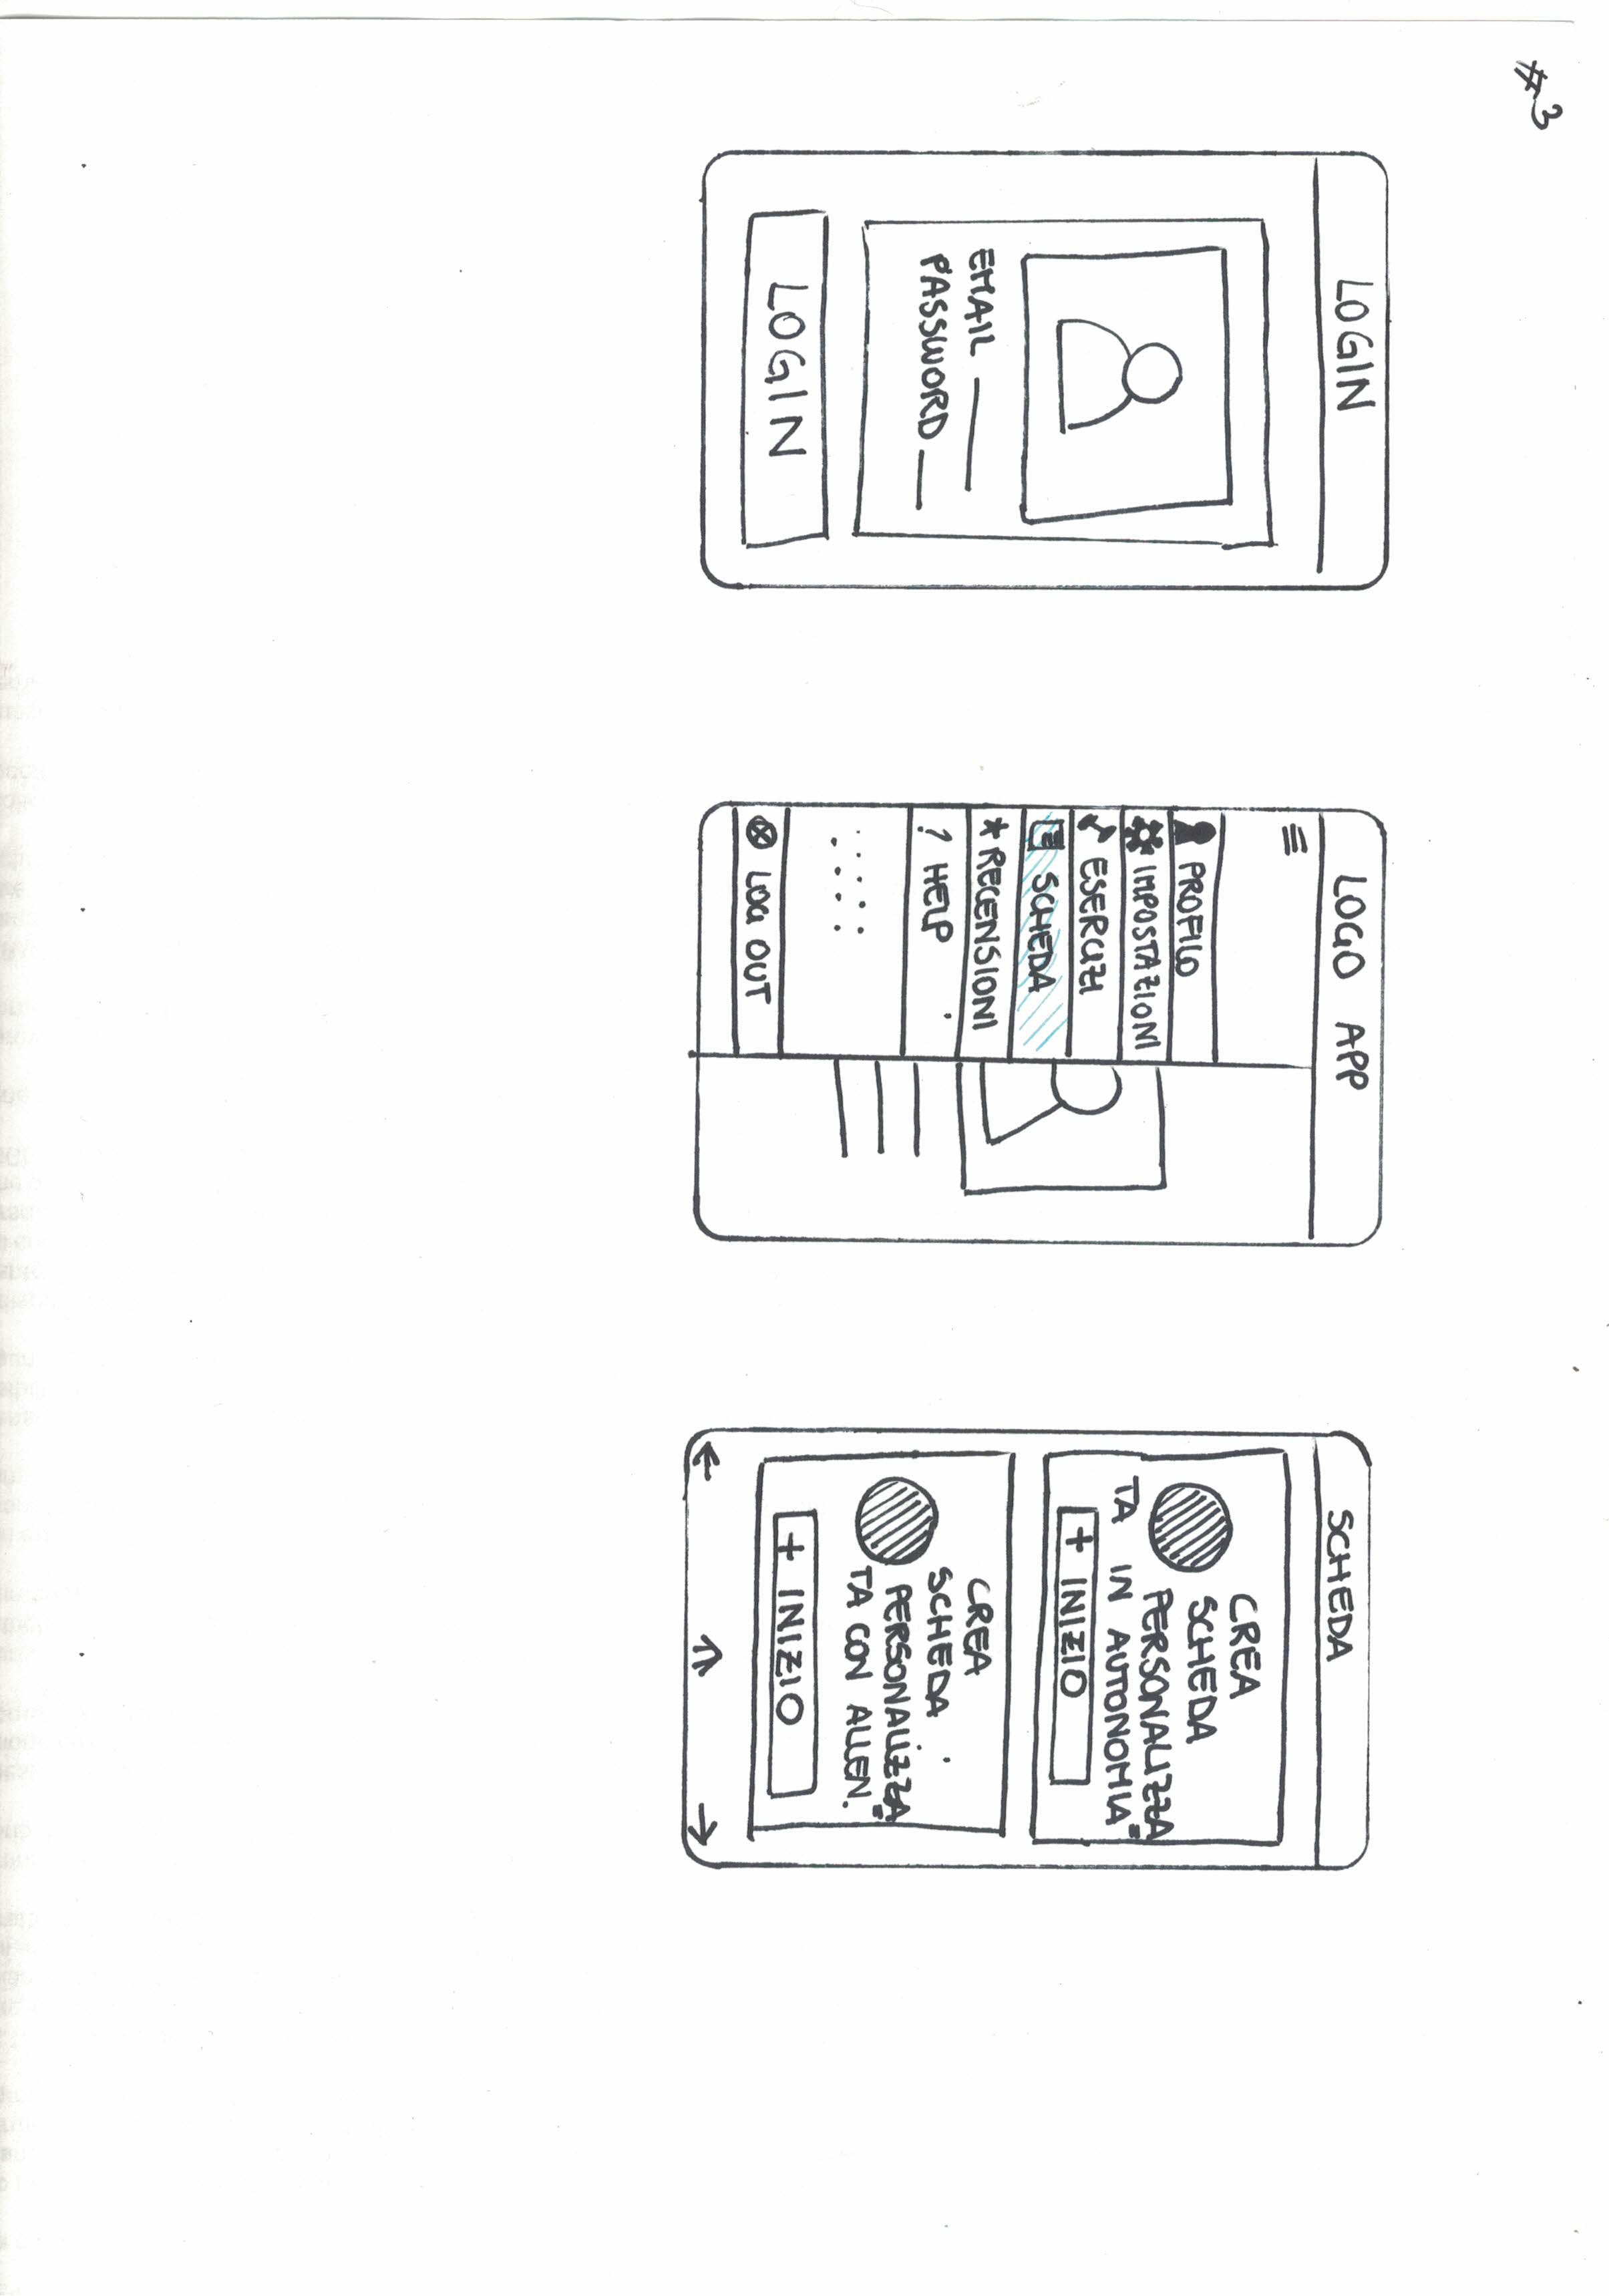 #3
LOGIN
EMAIL
PASSWORD
LOGIN
LOGO APP
PROFILO
IMPOSTAZIONI
ESERCIZI
SCHEDA
* RECENSIONI
? HELP
LOG OUT
SCHEDA
CREA
SCHEDA
PERSONALIZZA=
TA IN AUTONOMIA
+ INIZIO
CREA
SCHEDA
PERSONALIZZA=
TA CON ALLEN.
+ INIZIO